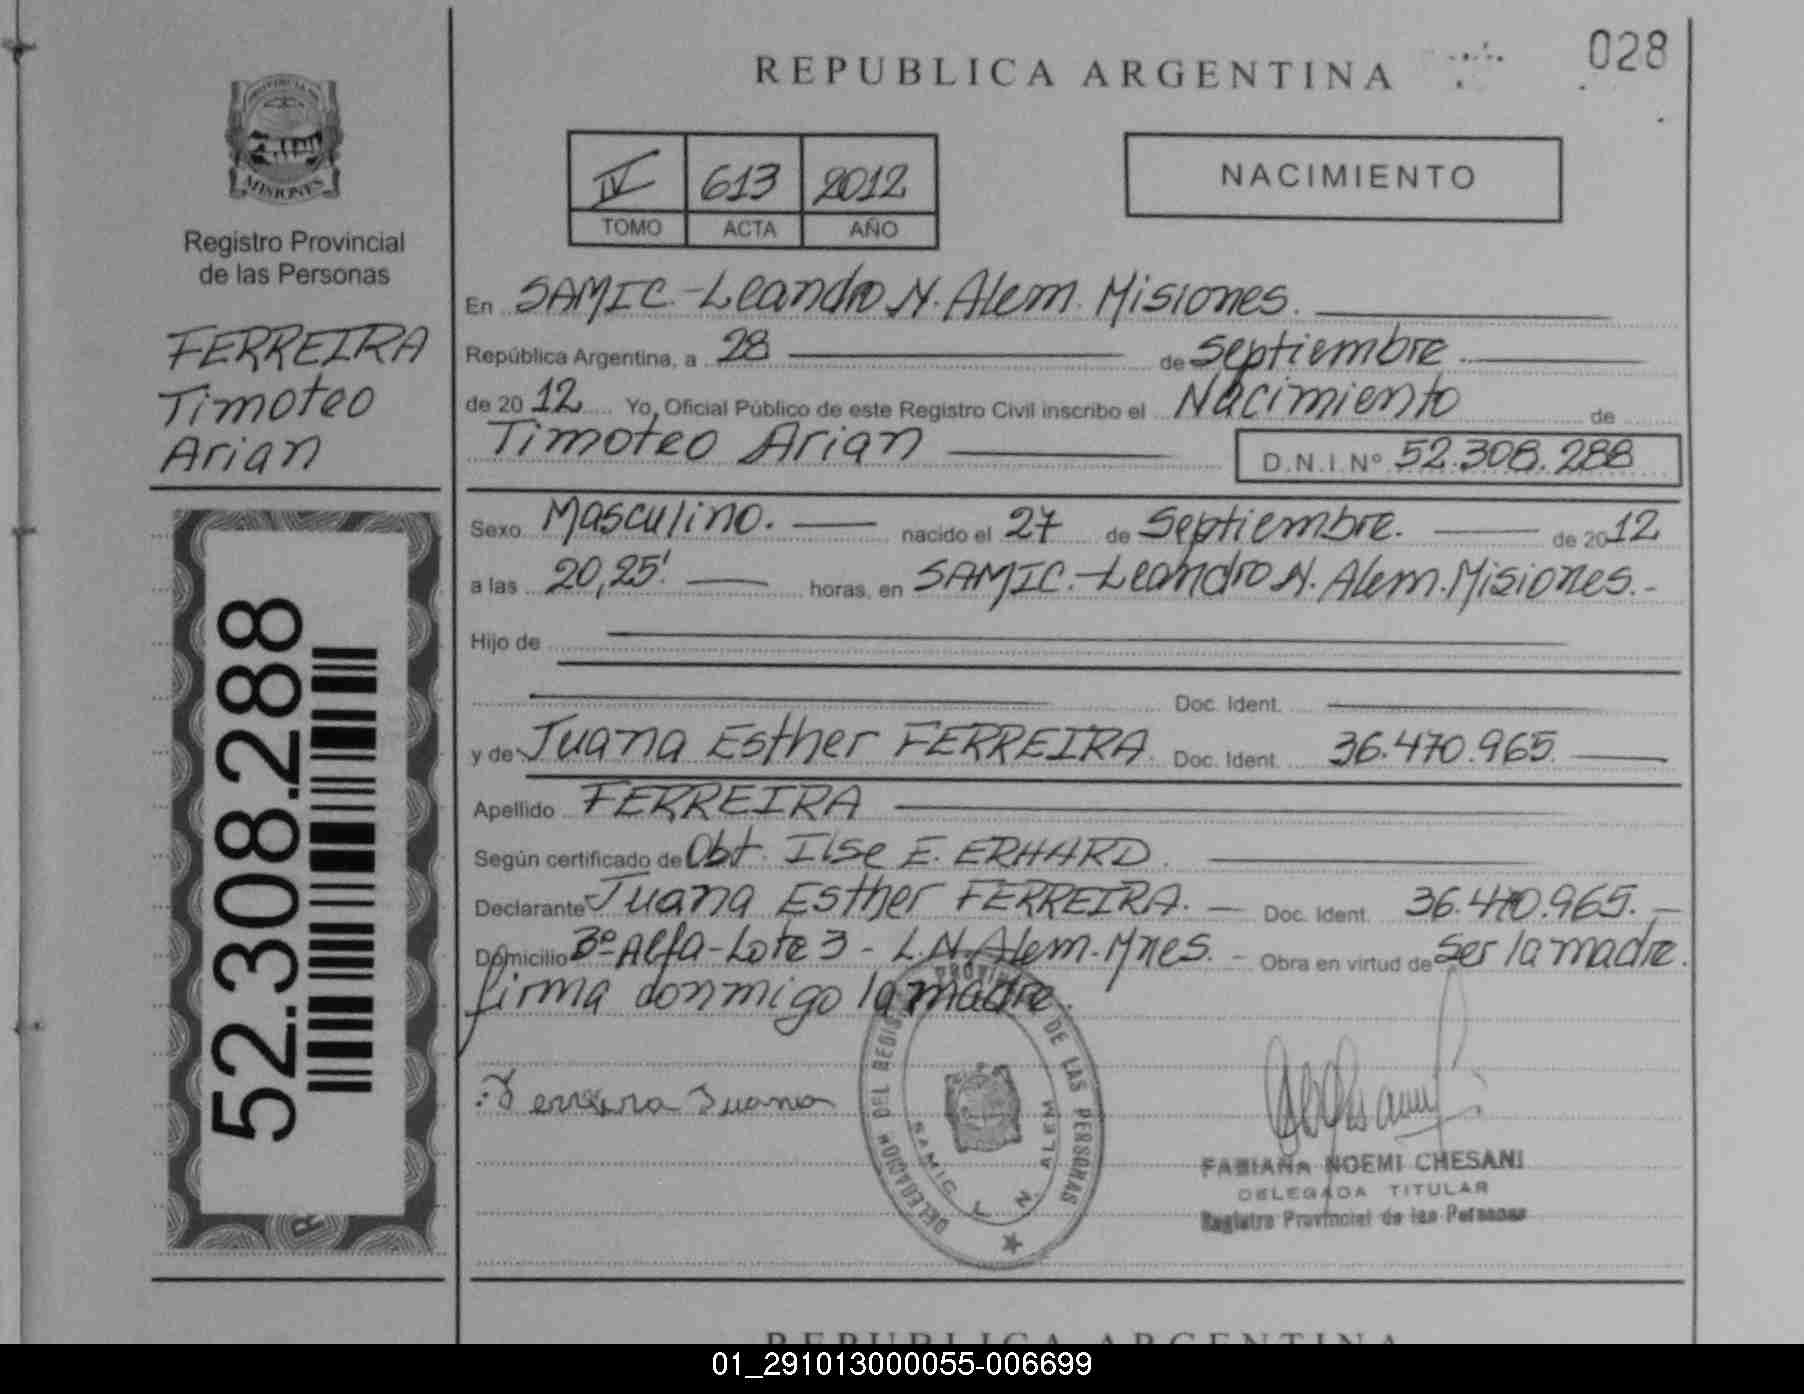 028
REPUBLICA ARGENTINA
PROVINCIA DE
MISIONES
Registro Provincial
de las Personas
FERREIRA
Timoteo
Arian
52.308.288
IV 613 2012
TOMO ACTA AÑO
NACIMIENTO
En SAMIC.-Leandro N. Alem. Misiones.
República Argentina, a 28 de Septiembre
de 2012 Yo, Oficial Público de este Registro Civil inscribo el Nacimiento de
Timoteo Arian D.N.I.Nº 52.308.288
Sexo Masculino. nacido el 27 de Septiembre. de 2012
a las 20,25' horas, en SAMIC.-Leandro N. Alem. Misiones.-
Hijo de
Doc. Ident.
y de Juana Esther FERREIRA. Doc. Ident. 36.470.965.
Apellido FERREIRA
Según certificado de Obt. Ilse E. ERHARD.
Declarante Juana Esther FERREIRA. - Doc. Ident. 36.470.965.-
Domicilio 3º Alfa-Lote 3 - L.N. Alem.-Mnes. - Obra en virtud de Ser la madre.
firma conmigo la madre.
Ferreira Juana
DELEGACION DEL REGISTRO PROVINCIAL DE LAS PERSONAS
SAMIC L. N. ALEM
FABIANA NOEMI CHESANI
DELEGADA TITULAR
Registro Provincial de las Personas
REPUBLICA ARGENTINA
01_291013000055-006699